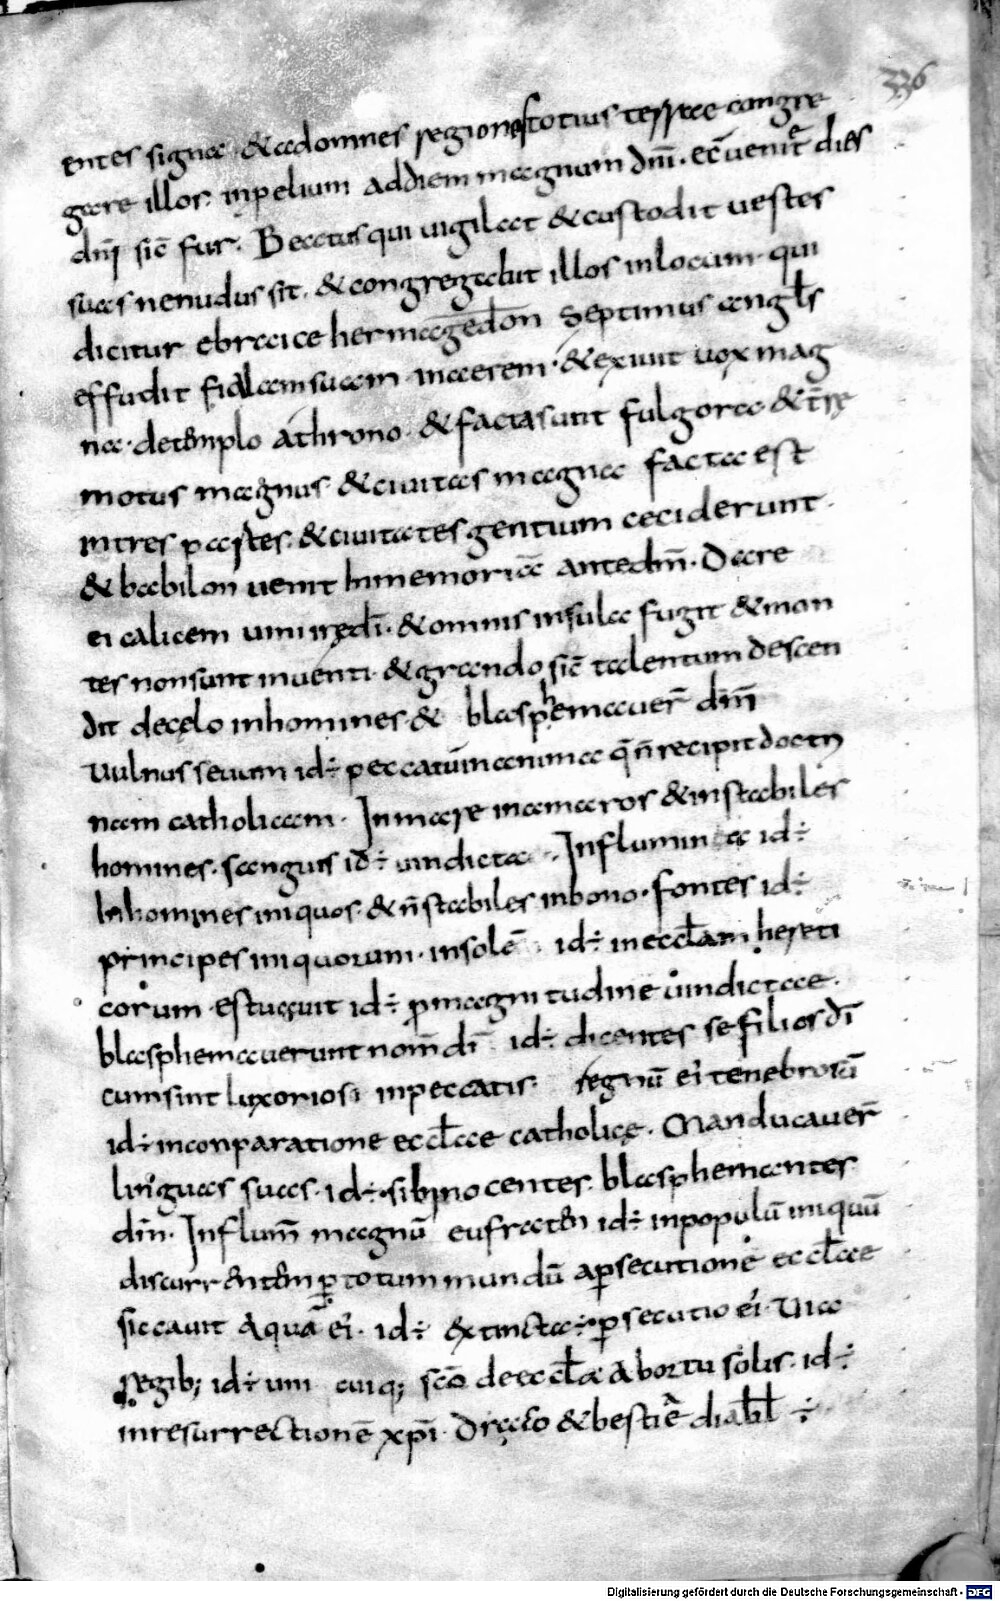 336
entes signa & adomnes regiones totius terrae congre
gare illos inpelium addiem magnum dnī. ecc̄ uenit dies
dnī sic̄ fur. Beatus qui uigilat & custodit uestes
suas nenudus sit. & congregabit illos inlocum qui
dicitur ebraice hermagedon Septimus angls̄
effudit fialam suam inaerem. & exiuit uox mag
na. detemplo athrono. & facta sunt fulgora & t̄rę
motus magnus & ciuitas magna facta est
intres partes. & ciuitates gentium ceciderunt.
& babilon uenit inmemoriā antedm̄. Dare
ei calicem uini irędī. & omnis insula fugit & mon
tes nonsunt inuenti. & grando sic̄ talentum descen
dit decęlo inhomines. & blasphemauer̄ dm̄
Uulnus seuum id÷ peccatum inanima q̄ n̄ recipit doctri
nam catholicam. Inmare inamaros & instabiles
homines. sanguis id÷ uindicta. Influmina id÷
inhomines iniquos. & n̄ stabiles inbono. fontes id÷
principes iniquorum. insolē id÷ inecclam̄ hereti
corum. estuauit id÷ p̄magnitudine uindictae.
blasphemauerunt nom̄ dī id÷ dicentes se filios dī
cumsint luxoriosi inpeccatis. regnū ei' tenebrosū
id÷ inconparatione ecclae catholicę. Manducauer̄
linguas suas. id÷ sibi nocentes. blasphemantes
dm̄. Influm̄ magnū eufraten id÷ inpopulū iniquū
discurrentem p̄ totum mundū apsecutione ecclae
siccauit Aquā ei'. id÷ extincta ÷ psecutio ei'. Uia
regib; id÷ uni cuiq; scō deeccla Abortu solis. id÷
inresurrectionē xpī. Draco & bestie diabl ÷
Digitalisierung gefördert durch die Deutsche Forschungsgemeinschaft - DFG